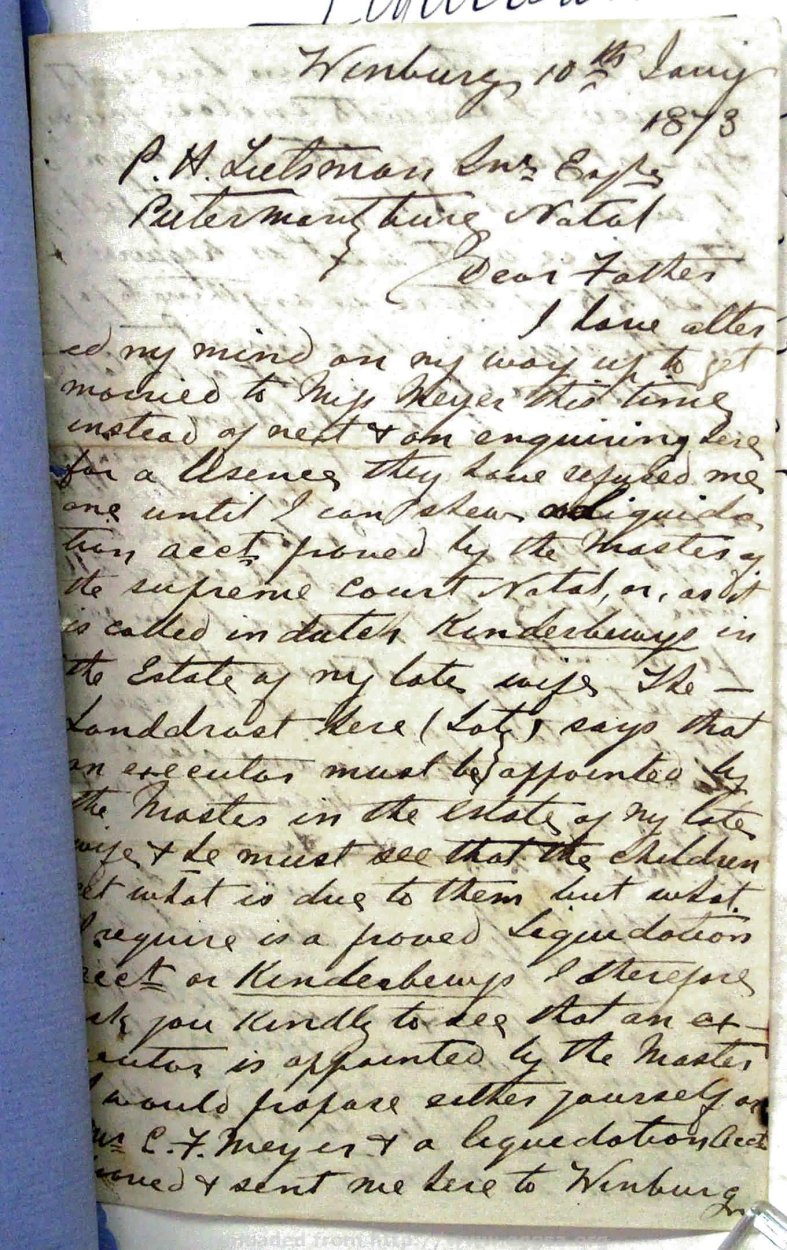 Winburg 10th Jany
1873
P. H. Lutsman Snr Esqre
Pietermaritzburg Natal
Dear Father
I have alter
ed my mind on my way up to get
married to Miss Meyer this time
instead of next & on enquiring here
for a lisence they have refused me
one until I can shew a Liquida
tion acct proved by the Master of
the supreme court Natal, or, as it
is called in dutch Kinderbewys in
the Estate of my late wife The —
Landdrost here (Loty) says that
an executor must be appointed by
the Master in the estate of my late
wife & he must see that the children
get what is due to them but what
I require is a proved Liquidation
acct or Kinderbewys I therefore
ask you kindly to see that an ex—
ecutor is appointed by the Master
I would propose either yourself or
Mr C. F. Meyer & a liquedation acct
proved & sent me here to Winburg